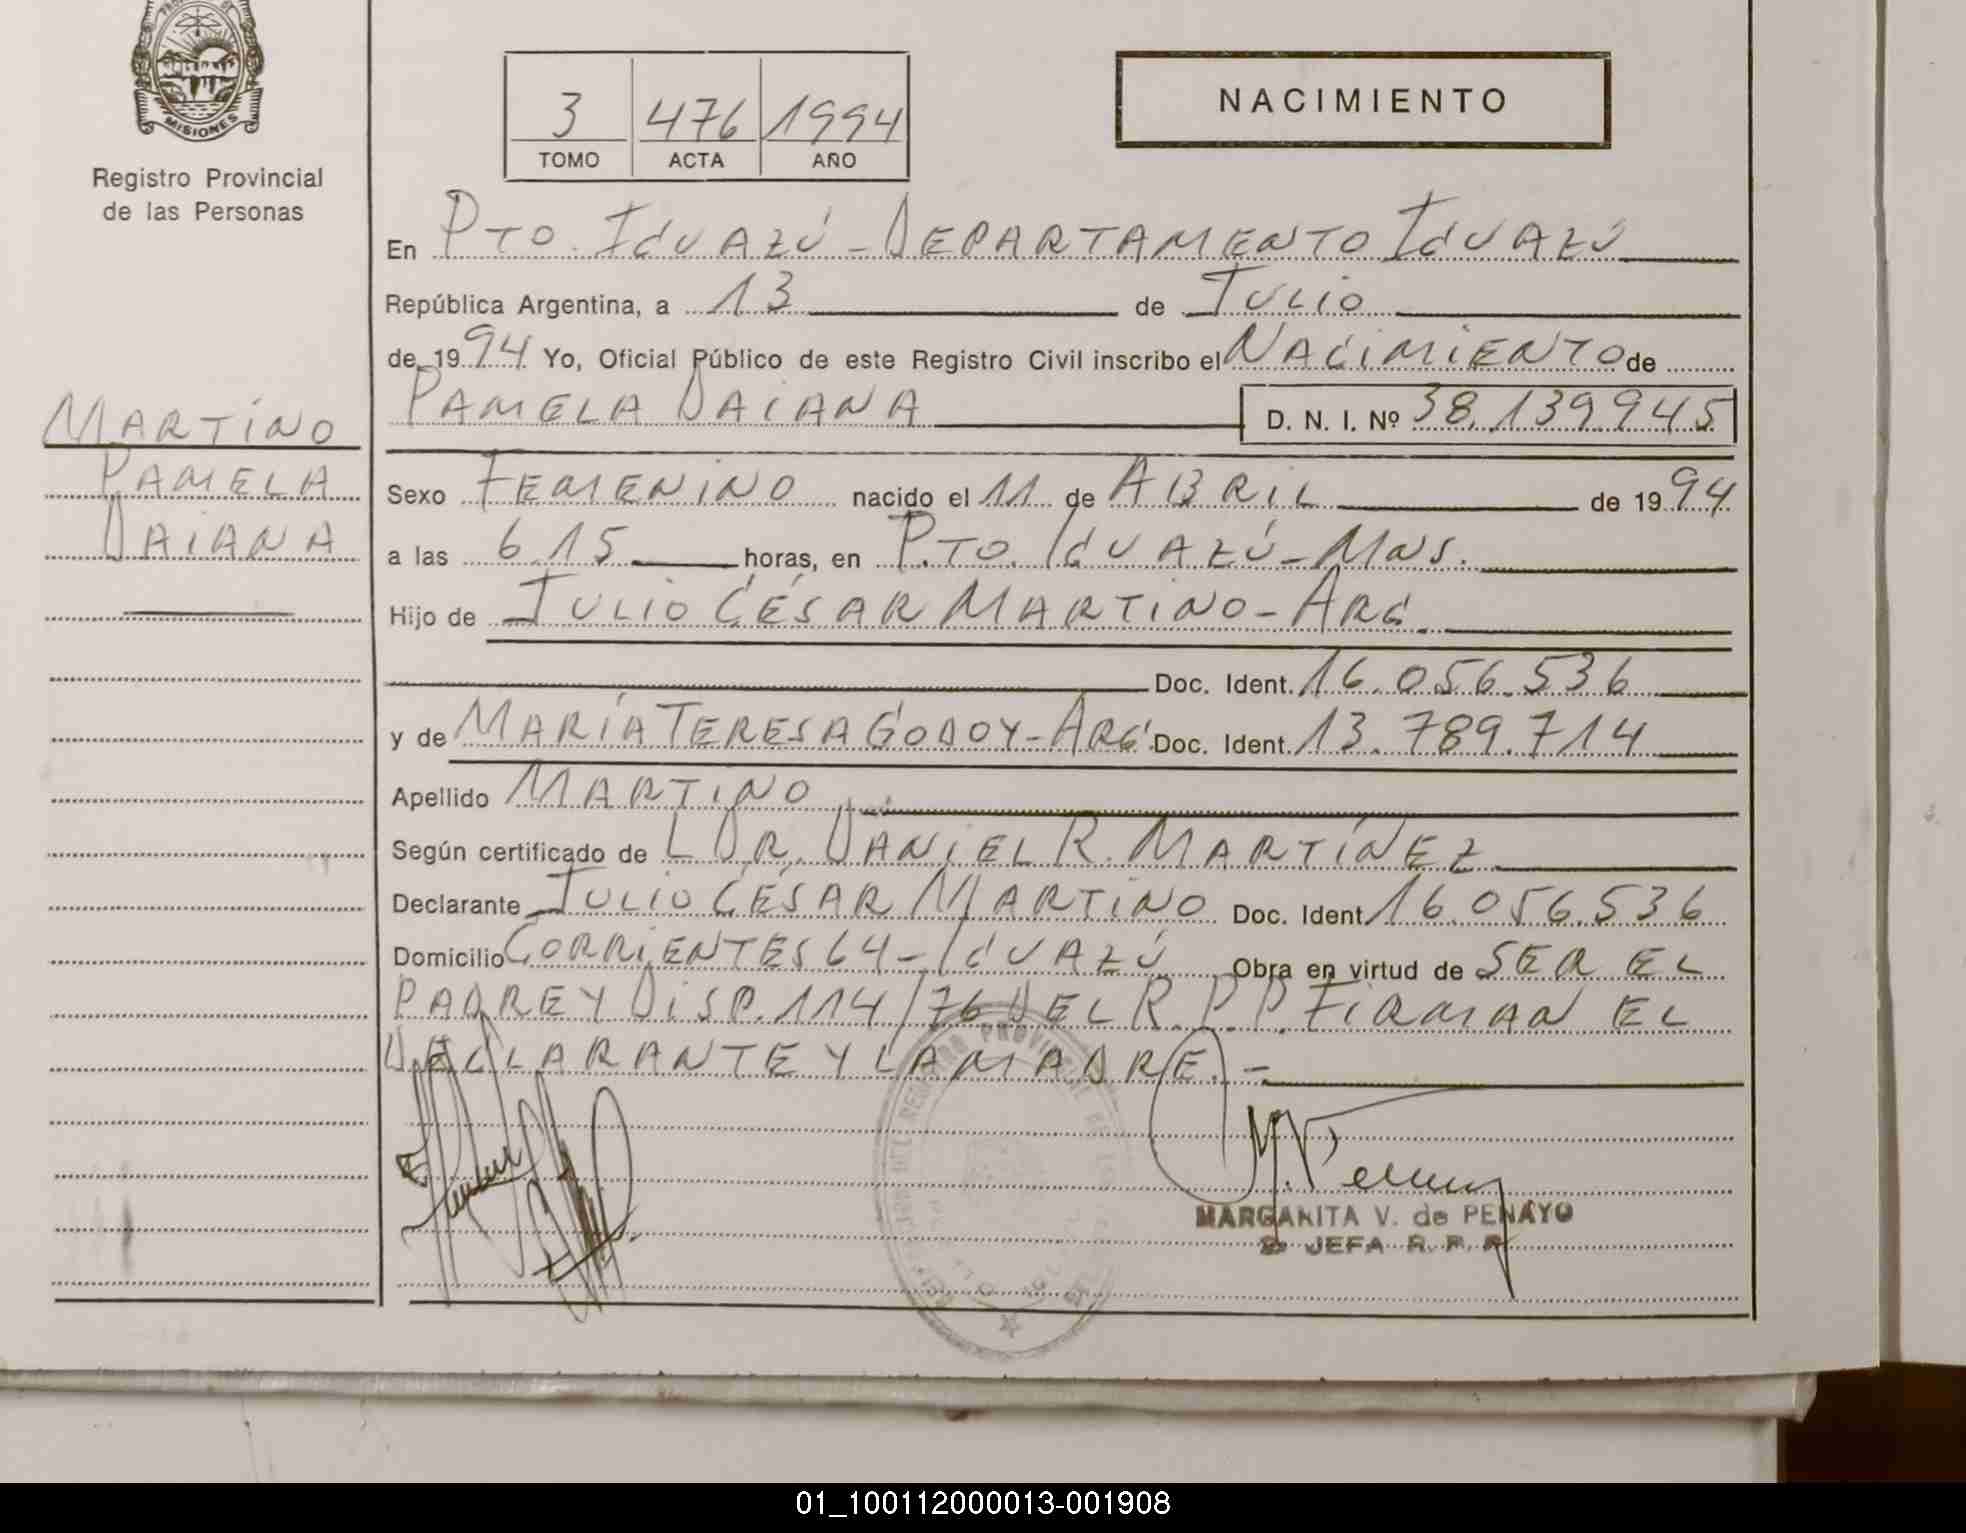 MISIONES
Registro Provincial
de las Personas
3 476 1994
TOMO ACTA AÑO
NACIMIENTO
En PTO. IGUAZÚ - DEPARTAMENTO IGUAZÚ
República Argentina, a 13 de JULIO
de 1994 Yo, Oficial Público de este Registro Civil inscribo el NACIMIENTO de
PAMELA DAIANA D. N. I. Nº 38.139.945
MARTINO
PAMELA
DAIANA
Sexo FEMENINO nacido el 11 de ABRIL de 1994
a las 6.15 horas, en PTO. IGUAZÚ - MNS.
Hijo de JULIO CÉSAR MARTINO - ARG.
Doc. Ident. 16.056.536
y de MARÍA TERESA GODOY - ARG. Doc. Ident. 13.789.714
Apellido MARTINO
Según certificado de L DR. DANIEL R. MARTÍNEZ
Declarante JULIO CÉSAR MARTINO Doc. Ident. 16.056.536
Domicilio CORRIENTES 64 - IGUAZÚ Obra en virtud de SER EL
PADRE Y DISP. 114/76 DEL R.P.P. FIRMAN EL
DECLARANTE Y LA MADRE. -
MARGARITA V. de PENAYO
JEFA R. P. P.
01_100112000013-001908